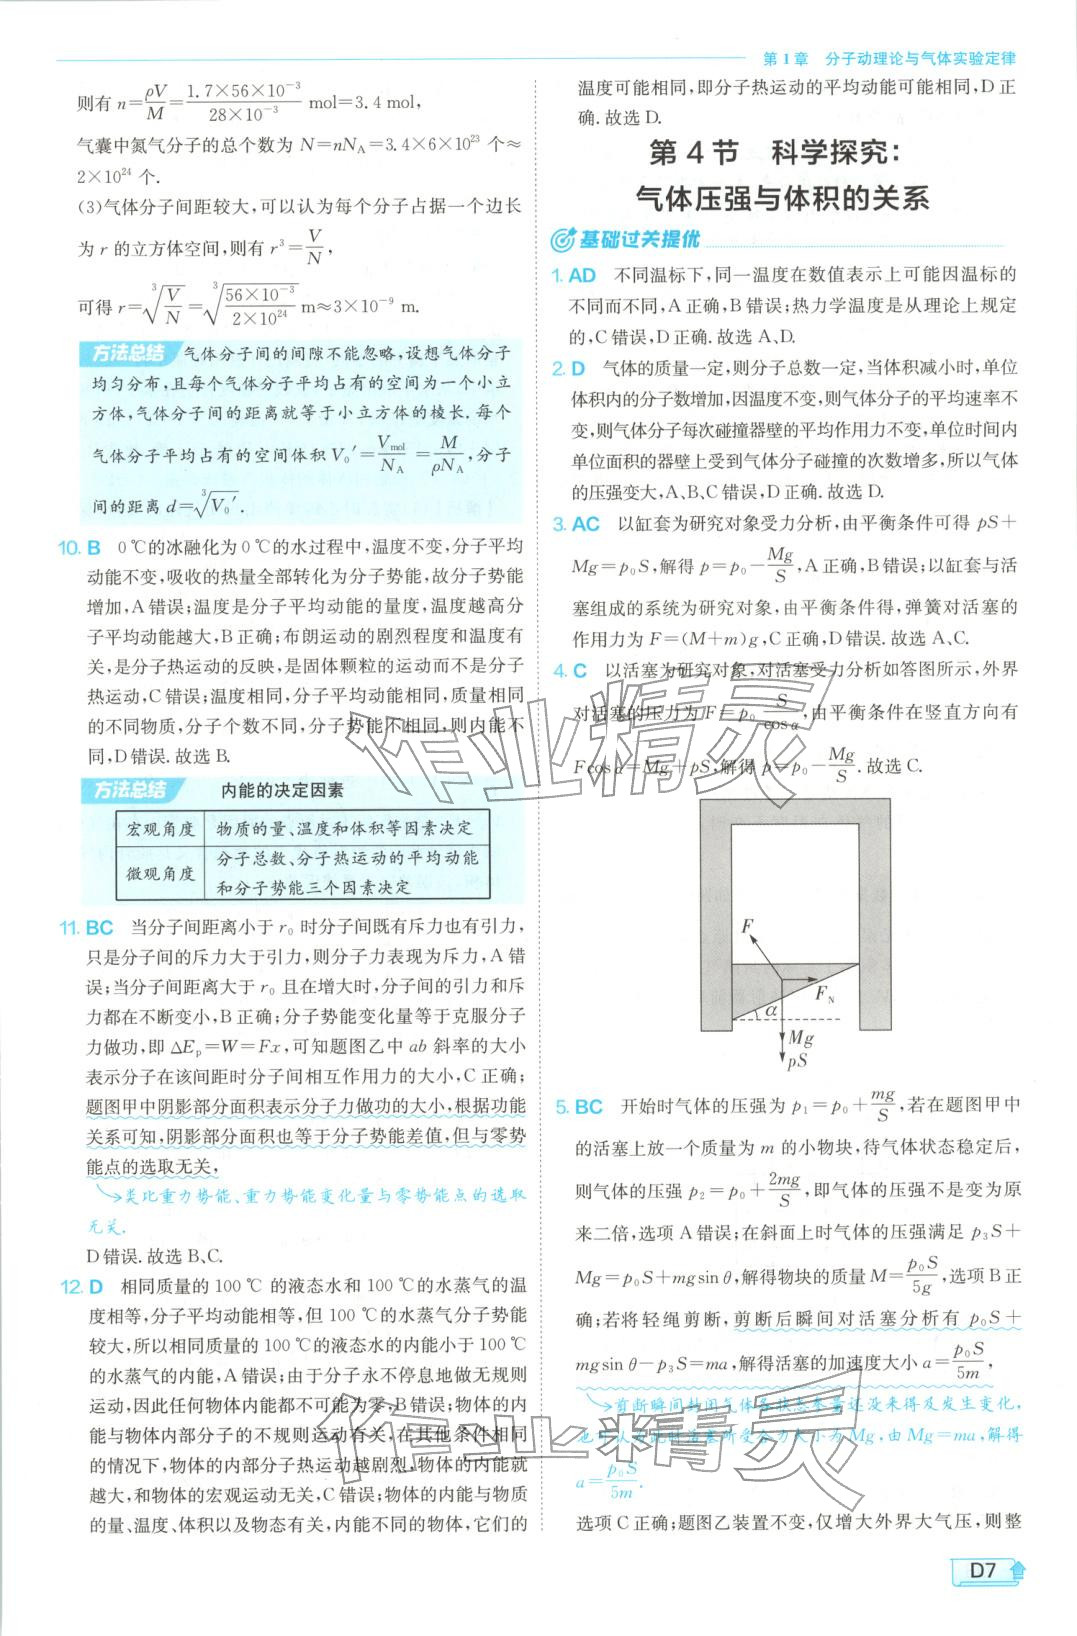 第1章 分子动理论与气体实验定律
则有 n=ρV/M=(1.7×56×10⁻³)/(28×10⁻³) mol=3.4 mol,
气囊中氮气分子的总个数为 N=nN_A=3.4×6×10²³ 个≈
2×10²⁴ 个.
(3)气体分子间距较大,可以认为每个分子占据一个边长
为 r 的立方体空间,则有 r³=V/N,
可得 r=∛(V/N)=∛((56×10⁻³)/(2×10²⁴)) m≈3×10⁻⁹ m.
方法总结 气体分子间的间隙不能忽略,设想气体分子
均匀分布,且每个气体分子平均占有的空间为一个小立
方体,气体分子间的距离就等于小立方体的棱长. 每个
气体分子平均占有的空间体积 V₀′=V_mol/N_A=M/(ρN_A),分子
间的距离 d=∛V₀′.
10. B 0 ℃的冰融化为0 ℃的水过程中,温度不变,分子平均
动能不变,吸收的热量全部转化为分子势能,故分子势能
增加,A错误;温度是分子平均动能的量度,温度越高分
子平均动能越大,B正确;布朗运动的剧烈程度和温度有
关,是分子热运动的反映,是固体颗粒的运动而不是分子
热运动,C错误;温度相同,分子平均动能相同,质量相同
的不同物质,分子个数不同,分子势能不相同,则内能不
同,D错误. 故选B.
方法总结 内能的决定因素
宏观角度 物质的量、温度和体积等因素决定
微观角度 分子总数、分子热运动的平均动能
和分子势能三个因素决定
11. BC 当分子间距离小于 r₀ 时分子间既有斥力也有引力,
只是分子间的斥力大于引力,则分子力表现为斥力,A错
误;当分子间距离大于 r₀ 且在增大时,分子间的引力和斥
力都在不断变小,B正确;分子势能变化量等于克服分子
力做功,即 ΔE_p=W=Fx,可知题图乙中 ab 斜率的大小
表示分子在该间距时分子间相互作用力的大小,C正确;
题图甲中阴影部分面积表示分子力做功的大小,根据功能
关系可知,阴影部分面积也等于分子势能差值,但与零势
能点的选取无关,
类比重力势能、重力势能变化量与零势能点的选取
无关.
D错误. 故选B、C.
12. D 相同质量的100 ℃ 的液态水和100 ℃的水蒸气的温
度相等,分子平均动能相等,但100 ℃的水蒸气分子势能
较大,所以相同质量的100 ℃的液态水的内能小于100 ℃
的水蒸气的内能,A错误;由于分子永不停息地做无规则
运动,因此任何物体内能都不可能为零,B错误;物体的内
能与物体内部分子的不规则运动有关,在其他条件相同
的情况下,物体的内部分子热运动越剧烈,物体的内能就
越大,和物体的宏观运动无关,C错误;物体的内能与物质
的量、温度、体积以及物态有关,内能不同的物体,它们的
温度可能相同,即分子热运动的平均动能可能相同,D正
确. 故选D.
第4节 科学探究:
气体压强与体积的关系
基础过关提优
1. AD 不同温标下,同一温度在数值表示上可能因温标的
不同而不同,A正确,B错误;热力学温度是从理论上规定
的,C错误,D正确. 故选A、D.
2. D 气体的质量一定,则分子总数一定,当体积减小时,单位
体积内的分子数增加,因温度不变,则气体分子的平均速率不
变,则气体分子每次碰撞器壁的平均作用力不变,单位时间内
单位面积的器壁上受到气体分子碰撞的次数增多,所以气体
的压强变大,A、B、C错误,D正确. 故选D.
3. AC 以缸套为研究对象受力分析,由平衡条件可得 pS+
Mg=p₀S,解得 p=p₀-Mg/S,A正确,B错误;以缸套与活
塞组成的系统为研究对象,由平衡条件得,弹簧对活塞的
作用力为 F=(M+m)g,C正确,D错误. 故选A、C.
4. C 以活塞为研究对象,对活塞受力分析如答图所示,外界
对活塞的压力为 F=p₀ S/cos α,由平衡条件在竖直方向有
Fcos α=Mg+pS,解得 p=p₀-Mg/S. 故选C.
F
F_N
α
Mg
pS
5. BC 开始时气体的压强为 p₁=p₀+mg/S,若在题图甲中
的活塞上放一个质量为 m 的小物块,待气体状态稳定后,
则气体的压强 p₂=p₀+2mg/S,即气体的压强不是变为原
来二倍,选项A错误;在斜面上时气体的压强满足 p₃S+
Mg=p₀S+mgsin θ,解得物块的质量 M=p₀S/5g,选项B正
确;若将轻绳剪断,剪断后瞬间对活塞分析有 p₀S+
mgsin θ-p₃S=ma,解得活塞的加速度大小 a=p₀S/5m,
剪断瞬间封闭气体各状态参量还没来得及发生变化,
也可认为此时活塞所受合力大小为 Mg,由 Mg=ma,解得
a=p₀S/5m.
选项C正确;题图乙装置不变,仅增大外界大气压,则整
D7
作业精灵
作业精灵